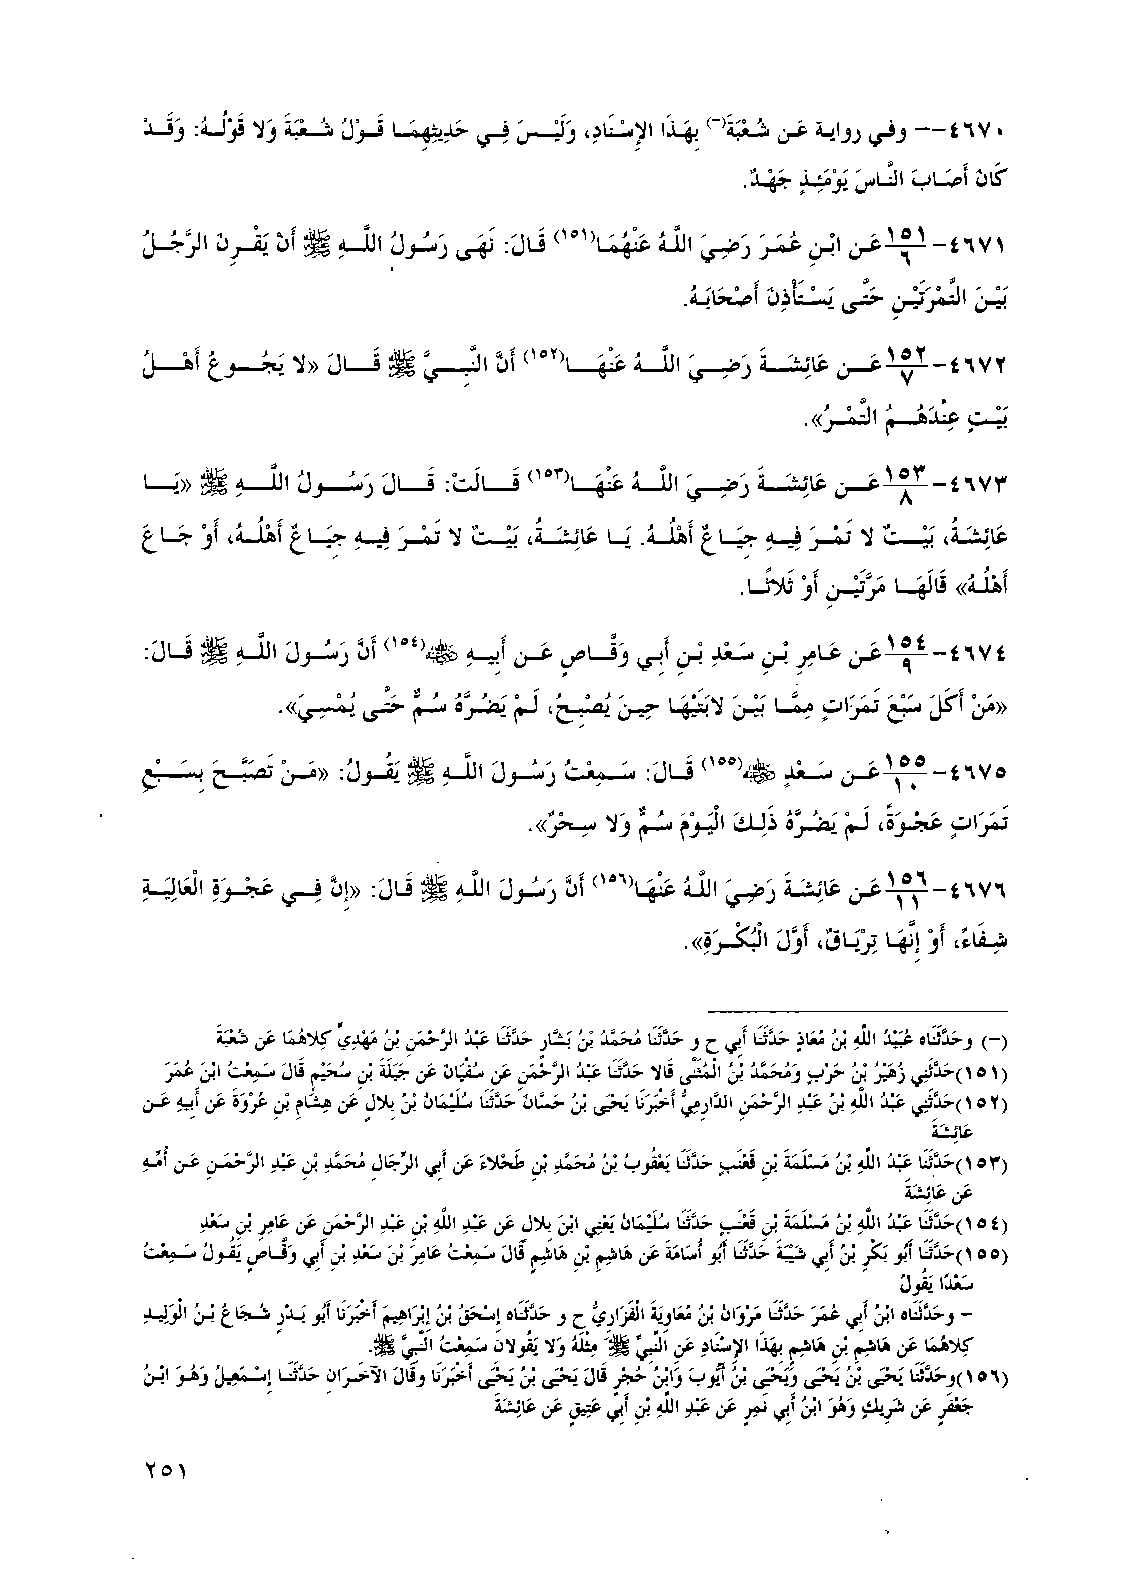 ٤٦٧٠-- وفي رواية عَن شُعْبَةَ(-) بِهَذَا الإِسْنَادِ، وَلَيْسَ فِي حَدِيثِهِمَا قَوْلُ شُعْبَةَ وَلا قَوْلُهُ: وَقَدْ
كَانَ أَصَابَ النَّاسَ يَوْمَئِذٍ جَهْدٌ.
٤٦٧١- ١٥١/٦ عَن ابْنِ عُمَرَ رَضِيَ اللَّهُ عَنْهُمَا(١٥١) قَالَ: نَهَى رَسُولُ اللَّهِ ﷺ أَنْ يَقْرِنَ الرَّجُلُ
بَيْنَ التَّمْرَتَيْنِ حَتَّى يَسْتَأْذِنَ أَصْحَابَهُ.
٤٦٧٢- ١٥٢/٧ عَن عَائِشَةَ رَضِيَ اللَّهُ عَنْهَا(١٥٢) أَنَّ النَّبِيَّ ﷺ قَالَ «لا يَجُوعُ أَهْلُ
بَيْتٍ عِنْدَهُمُ التَّمْرُ».
٤٦٧٣- ١٥٣/٨ عَن عَائِشَةَ رَضِيَ اللَّهُ عَنْهَا(١٥٣) قَالَتْ: قَالَ رَسُولُ اللَّهِ ﷺ «يَا
عَائِشَةُ، بَيْتٌ لا تَمْرَ فِيهِ جِيَاعٌ أَهْلُهُ. يَا عَائِشَةُ، بَيْتٌ لا تَمْرَ فِيهِ جِيَاعٌ أَهْلُهُ، أَوْ جَاعَ
أَهْلُهُ» قَالَهَا مَرَّتَيْنِ أَوْ ثَلاثًا.
٤٦٧٤- ١٥٤/٩ عَن عَامِرِ بْنِ سَعْدِ بْنِ أَبِي وَقَّاصٍ عَن أَبِيهِ ﷺ(١٥٤) أَنَّ رَسُولَ اللَّهِ ﷺ قَالَ:
«مَنْ أَكَلَ سَبْعَ تَمَرَاتٍ مِمَّا بَيْنَ لابَتَيْهَا حِينَ يُصْبِحُ، لَمْ يَضُرَّهُ سُمٌّ حَتَّى يُمْسِيَ».
٤٦٧٥- ١٥٥/١٠ عَن سَعْدٍ ﷺ(١٥٥) قَالَ: سَمِعْتُ رَسُولَ اللَّهِ ﷺ يَقُولُ: «مَنْ تَصَبَّحَ بِسَبْعِ
تَمَرَاتٍ عَجْوَةً، لَمْ يَضُرَّهُ ذَلِكَ الْيَوْمَ سُمٌّ وَلا سِحْرٌ».
٤٦٧٦- ١٥٦/١١ عَن عَائِشَةَ رَضِيَ اللَّهُ عَنْهَا(١٥٦) أَنَّ رَسُولَ اللَّهِ ﷺ قَالَ: «إِنَّ فِي عَجْوَةِ الْعَالِيَةِ
شِفَاءً، أَوْ إِنَّهَا تِرْيَاقٌ، أَوَّلَ الْبُكْرَةِ».
(-) وحَدَّثَنَاه عُبَيْدُ اللَّهِ بْنُ مُعَاذٍ حَدَّثَنَا أَبِي ح و حَدَّثَنَا مُحَمَّدُ بْنُ بَشَّارٍ حَدَّثَنَا عَبْدُ الرَّحْمَنِ بْنُ مَهْدِيٍّ كِلاهُمَا عَن شُعْبَةَ
(١٥١)حَدَّثَنِي زُهَيْرُ بْنُ حَرْبٍ وَمُحَمَّدُ بْنُ الْمُثَنَّى قَالا حَدَّثَنَا عَبْدُ الرَّحْمَنِ عَن سُفْيَانَ عَن جَبَلَةَ بْنِ سُحَيْمٍ قَالَ سَمِعْتُ ابْنَ عُمَرَ
(١٥٢)حَدَّثَنِي عَبْدُ اللَّهِ بْنُ عَبْدِ الرَّحْمَنِ الدَّارِمِيُّ أَخْبَرَنَا يَحْيَى بْنُ حَسَّانَ حَدَّثَنَا سُلَيْمَانُ بْنُ بِلالٍ عَن هِشَامِ بْنِ عُرْوَةَ عَن أَبِيهِ عَن
عَائِشَةَ
(١٥٣)حَدَّثَنَا عَبْدُ اللَّهِ بْنُ مَسْلَمَةَ بْنِ قَعْنَبٍ حَدَّثَنَا يَعْقُوبُ بْنُ مُحَمَّدِ بْنِ طَحْلاءَ عَن أَبِي الرِّجَالِ مُحَمَّدِ بْنِ عَبْدِ الرَّحْمَنِ عَن أُمِّهِ
عَن عَائِشَةَ
(١٥٤)حَدَّثَنَا عَبْدُ اللَّهِ بْنُ مَسْلَمَةَ بْنِ قَعْنَبٍ حَدَّثَنَا سُلَيْمَانُ يَعْنِي ابْنَ بِلالٍ عَن عَبْدِ اللَّهِ بْنِ عَبْدِ الرَّحْمَنِ عَن عَامِرِ بْنِ سَعْدِ
(١٥٥)حَدَّثَنَا أَبُو بَكْرِ بْنُ أَبِي شَيْبَةَ حَدَّثَنَا أَبُو أُسَامَةَ عَن هَاشِمِ بْنِ هَاشِمٍ قَالَ سَمِعْتُ عَامِرَ بْنَ سَعْدِ بْنِ أَبِي وَقَّاصٍ يَقُولُ سَمِعْتُ
سَعْدًا يَقُولُ
- وحَدَّثَنَاه ابْنُ أَبِي عُمَرَ حَدَّثَنَا مَرْوَانُ بْنُ مُعَاوِيَةَ الْفَزَارِيُّ ح و حَدَّثَنَاه إِسْحَقُ بْنُ إِبْرَاهِيمَ أَخْبَرَنَا أَبُو بَدْرٍ شُجَاعُ بْنُ الْوَلِيدِ
كِلاهُمَا عَن هَاشِمِ بْنِ هَاشِمٍ بِهَذَا الإِسْنَادِ عَن النَّبِيِّ ﷺ مِثْلَهُ وَلا يَقُولانِ سَمِعْتُ النَّبِيَّ ﷺ.
(١٥٦)وحَدَّثَنَا يَحْيَى بْنُ يَحْيَى وَيَحْيَى بْنُ أَيُّوبَ وَابْنُ حُجْرٍ قَالَ يَحْيَى بْنُ يَحْيَى أَخْبَرَنَا وقَالَ الآخَرَانِ حَدَّثَنَا إِسْمَعِيلُ وَهُوَ ابْنُ
جَعْفَرٍ عَن شَرِيكٍ وَهُوَ ابْنُ أَبِي نَمِرٍ عَن عَبْدِ اللَّهِ بْنِ أَبِي عَتِيقٍ عَن عَائِشَةَ
٢٥١